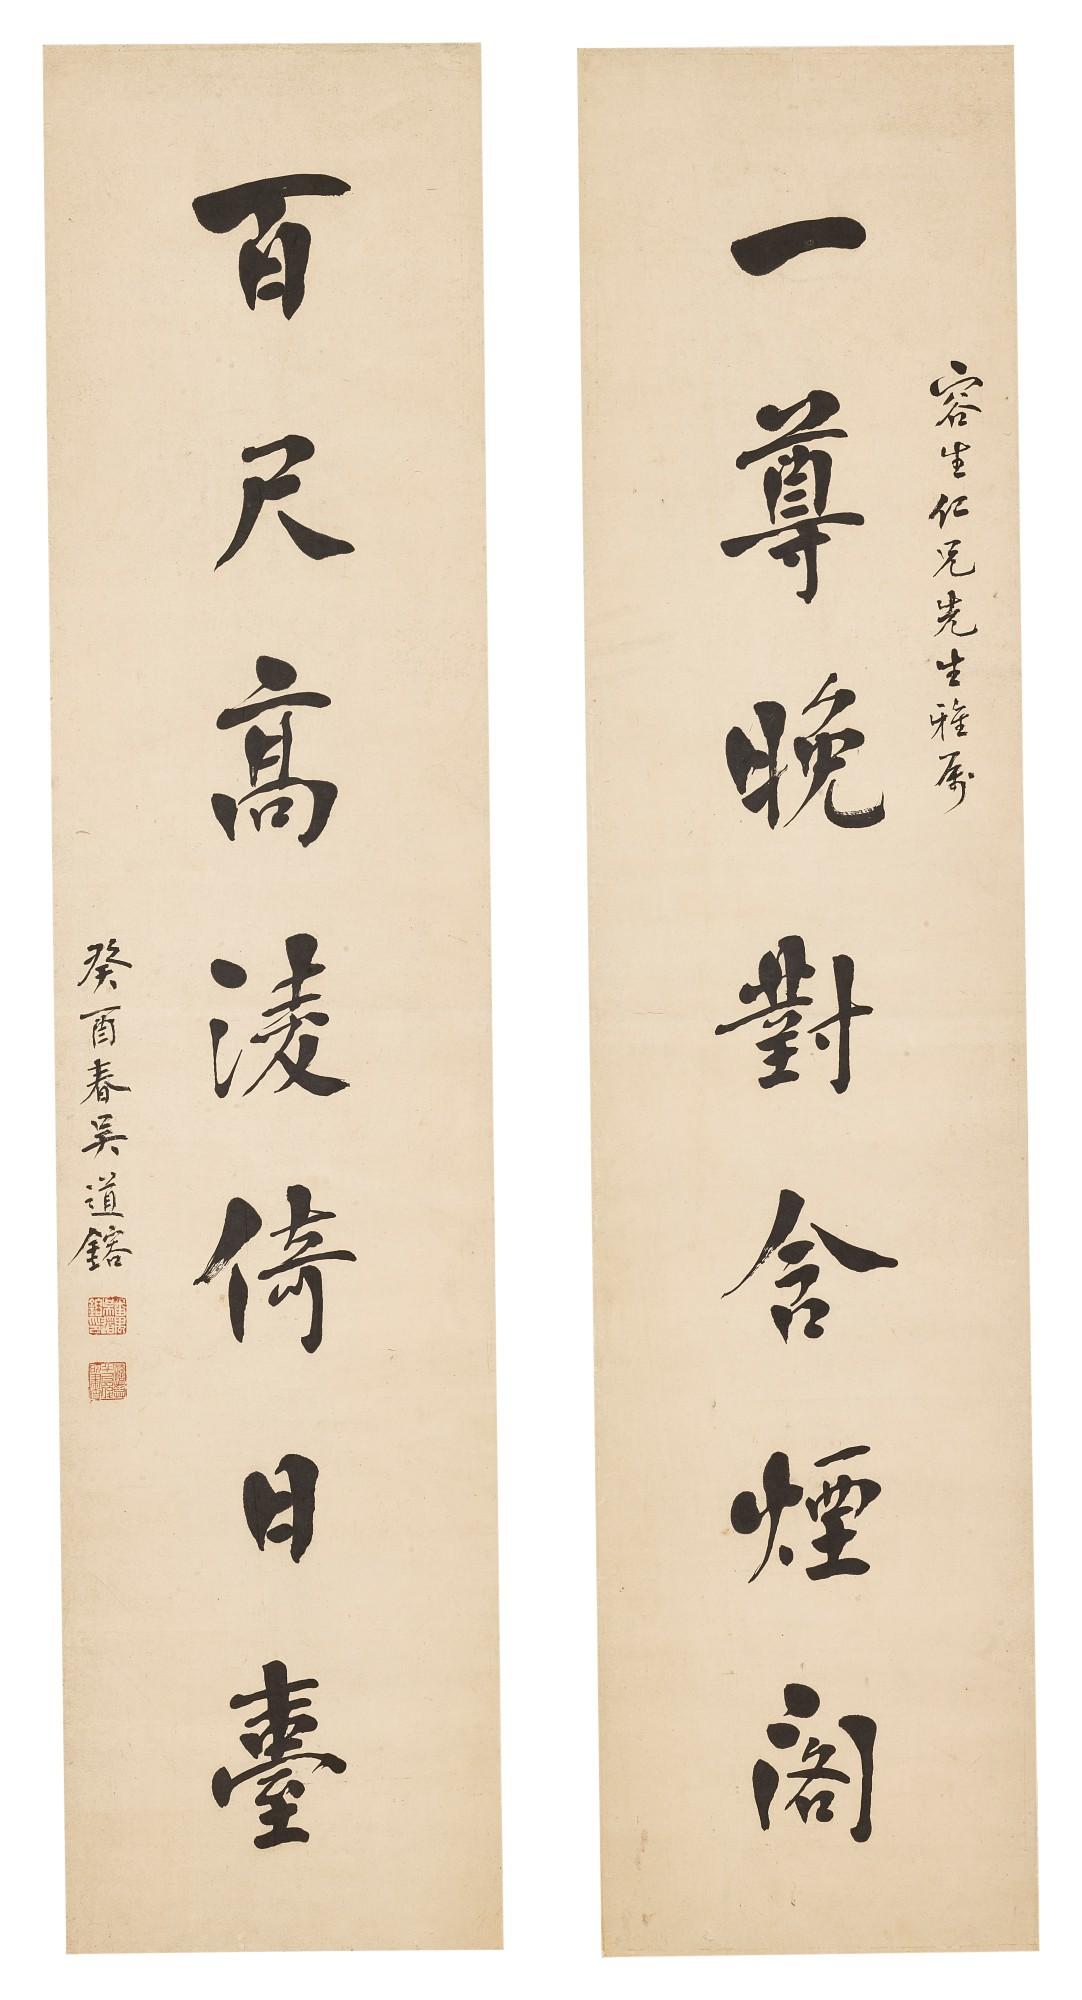 容生仁兄先生雅属
一尊晚對含煙阁
百尺高淩倚日臺
癸酉春吴道鎔